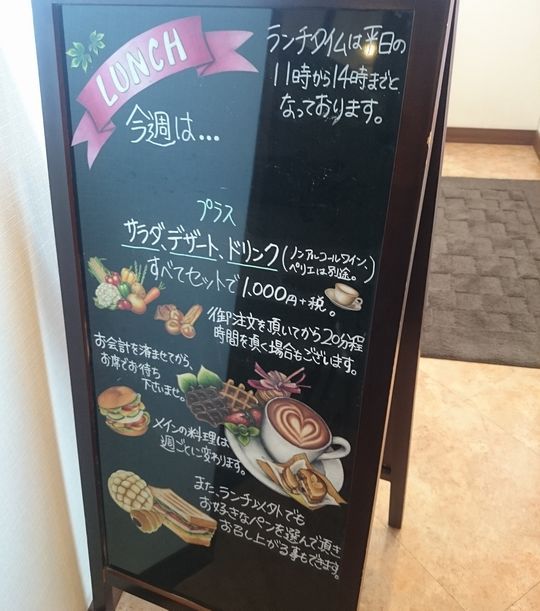 LUNCH
ランチタイムは平日の
11時から14時までと
なっております。
今週は...
プラス
サラダ、デザート、ドリンク(ノンアルコールワイン、
ペリエは別途。)
すべてセットで1,000円+税。
御注文を頂いてから20分程
時間を頂く場合もございます。
お会計を済ませてから、
お席でお待ち
下さいませ。
メインの料理は
週ごとに変わります。
また、ランチ以外でも
お好きなパンを選んで頂き
お召し上がる事もできます。